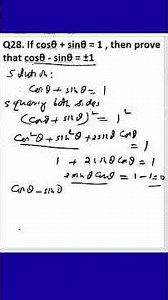 Q28. If cosθ + sinθ = 1 , then prove
that cosθ - sinθ = ±1
Solution:
Cosθ + sinθ = 1
squaring both sides
(cosθ + sinθ)² = 1²
Cos²θ + sin²θ + 2sinθ cosθ
= 1
1 + 2 sinθ cosθ = 1
2 sinθ cosθ = 1-1=0
Cosθ - sinθ